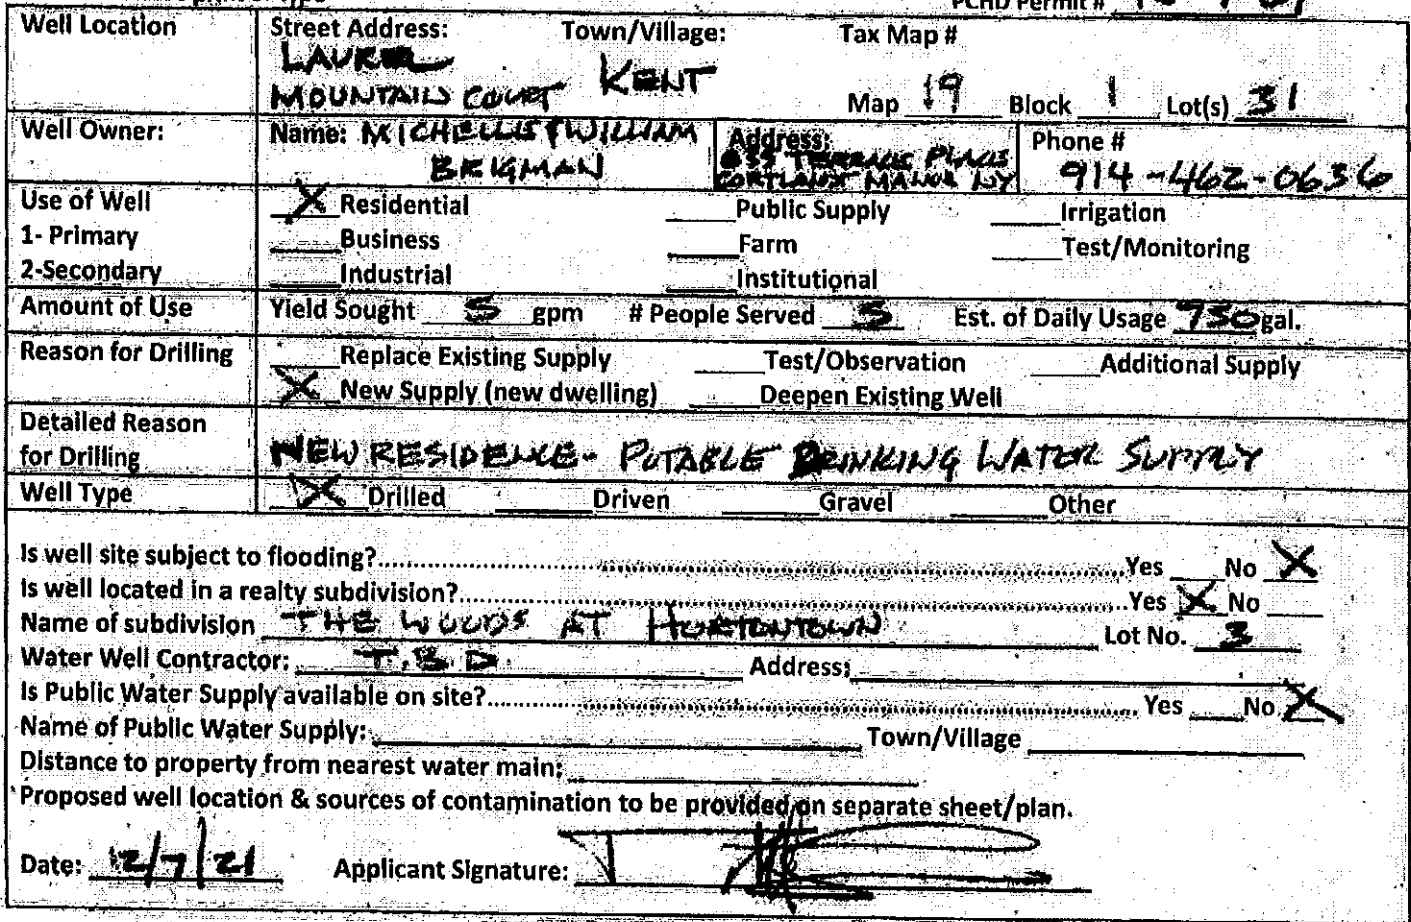 PCHD Permit #
Well Location
Street Address: Town/Village: Tax Map #
LAUREL
MOUNTAIN COURT KENT
Map 19 Block 1 Lot(s) 31
Well Owner: Name: MICHELLE & WILLIAM
BRIGMAN
Address:
TERRACE PLACE
CORTLANDT MANOR NY
Phone #
914-462-0636
Use of Well X Residential Public Supply Irrigation
1- Primary Business Farm Test/Monitoring
2-Secondary Industrial Institutional
Amount of Use Yield Sought 5 gpm # People Served 5 Est. of Daily Usage gal.
Reason for Drilling Replace Existing Supply Test/Observation Additional Supply
X New Supply (new dwelling) Deepen Existing Well
Detailed Reason
for Drilling NEW RESIDENCE- POTABLE DRINKING WATER SUPPLY
Well Type X Drilled Driven Gravel Other
Is well site subject to flooding?.....Yes No X
Is well located in a realty subdivision?.....Yes X No
Name of subdivision THE WOODS AT HORTONTOWN Lot No. 3
Water Well Contractor: T.B.D. Address:
Is Public Water Supply available on site?..... Yes No X
Name of Public Water Supply: Town/Village
Distance to property from nearest water main:
Proposed well location & sources of contamination to be provided on separate sheet/plan.
Date: 12/7/21 Applicant Signature: